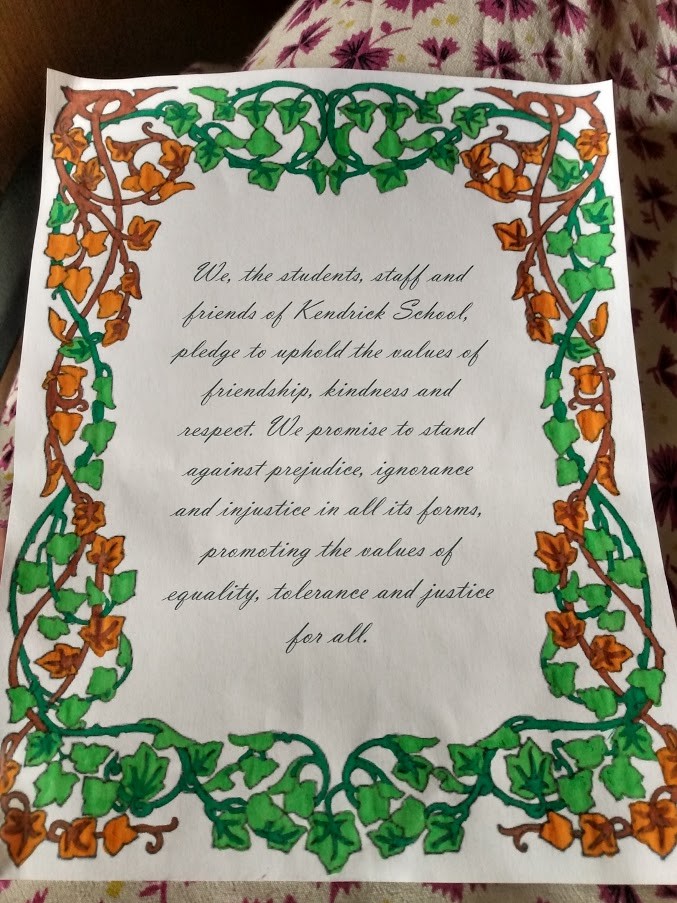 We, the students, staff and
friends of Kendrick School,
pledge to uphold the values of
friendship, kindness and
respect. We promise to stand
against prejudice, ignorance
and injustice in all its forms,
promoting the values of
equality, tolerance and justice
for all.